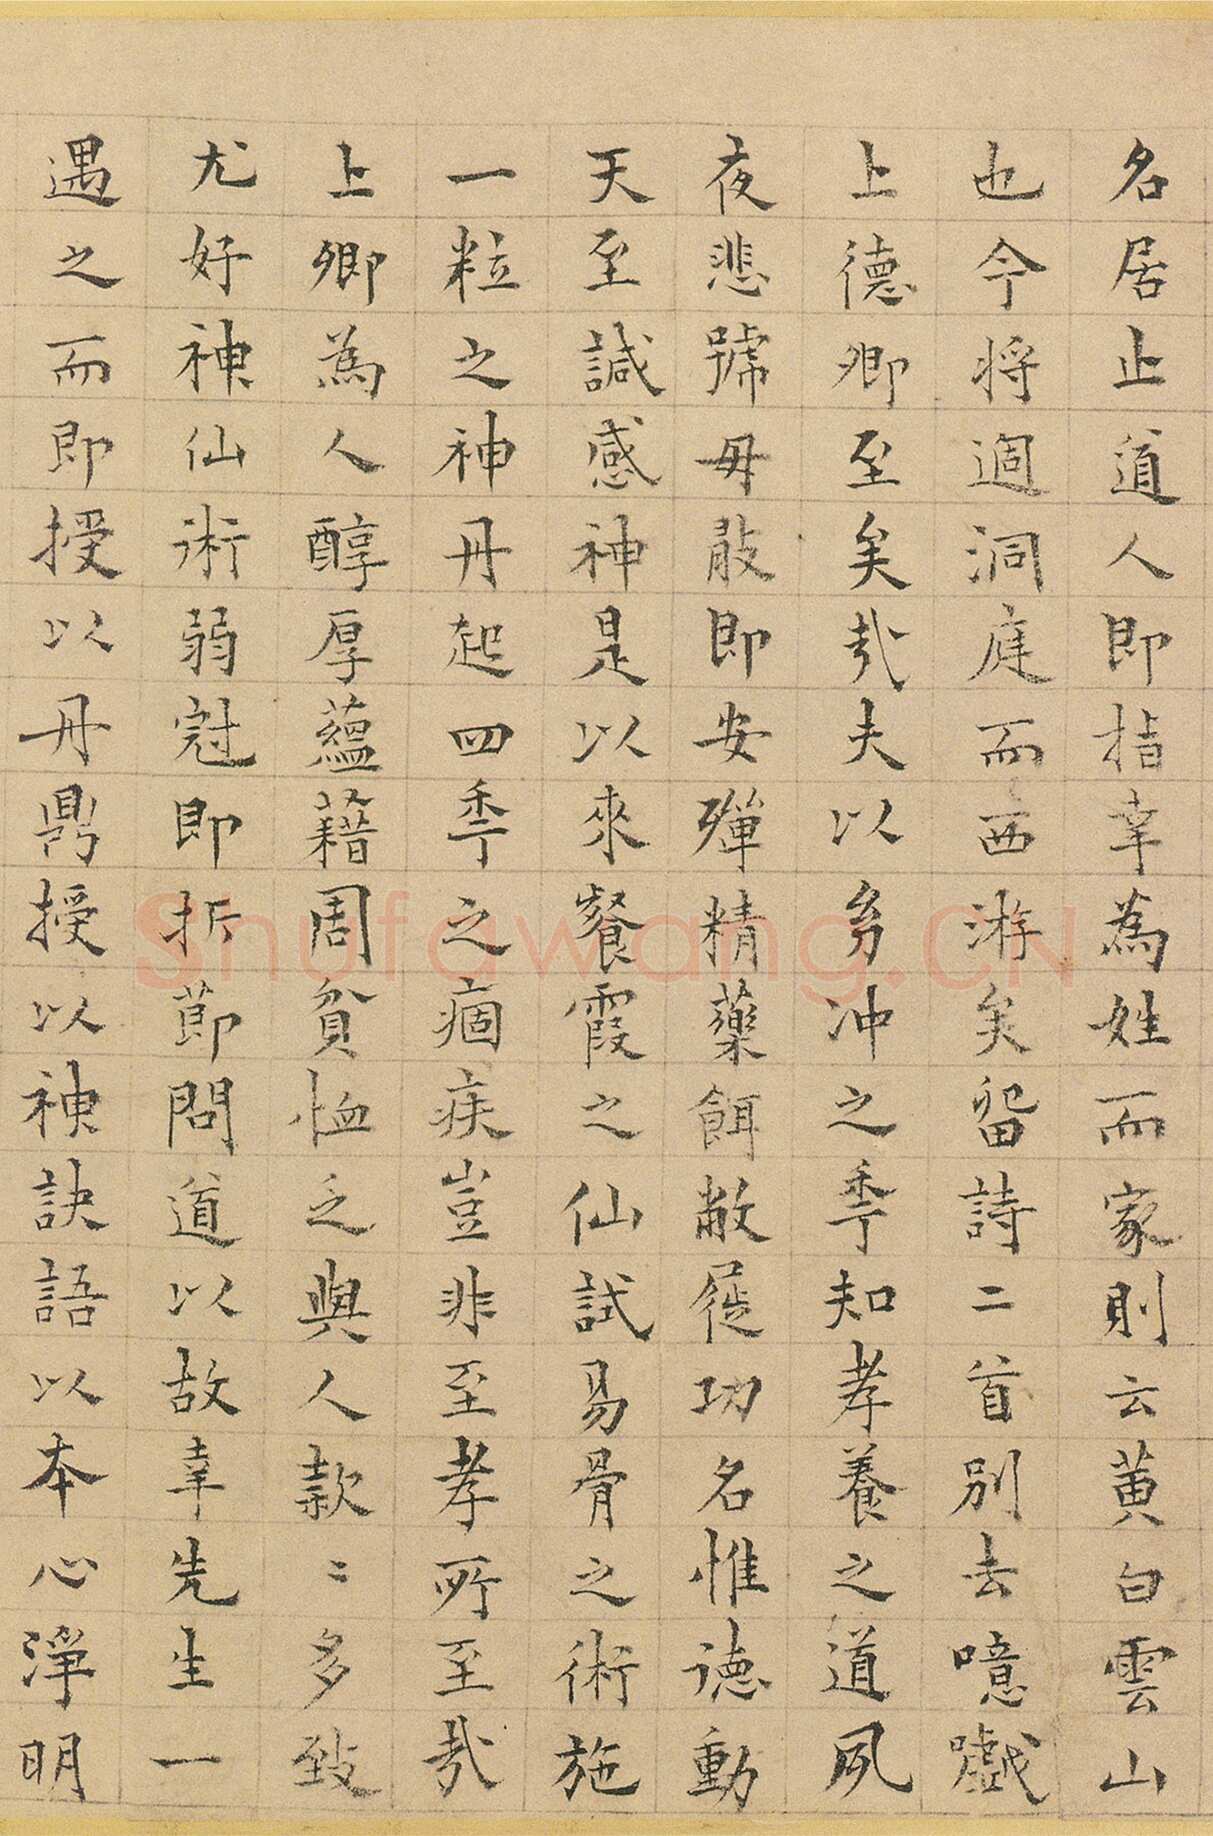 名居止道人即指幸為姓而家則云黄白雲山
也今将週洞庭而西游矣留詩二首别去噫戲
上德卿至矣㢤夫以㓜冲之秊知孝養之道夙
夜悲號毋敢即安殫精藥餌敝屣功名惟德動
天至諴感神是以來餐霞之仙試易骨之術施
一粒之神丹起四秊之痼疾豈非至孝所至㢤
上卿為人醇厚蘊藉周貧恤乏與人款〻多致
尤好神仙術弱冠即折節問道以故幸先生一
遇之而即授以丹鼎授以神訣語以本心淨明
Shufawang.CN